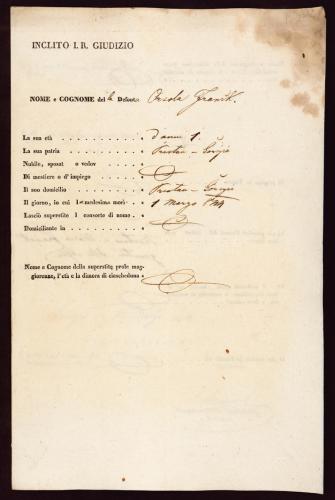 INCLITO I. R. GIUDIZIO
NOME e COGNOME del la Defunta Orsola
La sua età d'anni 1.
La sua patria Trieste –
Nubile, sposat o vedov
Di mestiere o d'impiego
Il suo domicilio Trieste –
Il giorno, in cui la medesima morì 1 Marzo
Lasciò superstite l consorte di nome
Domiciliante in
Nome e Cognome della superstite prole maggiorenne,
l'età e la dimora di ciascheduna